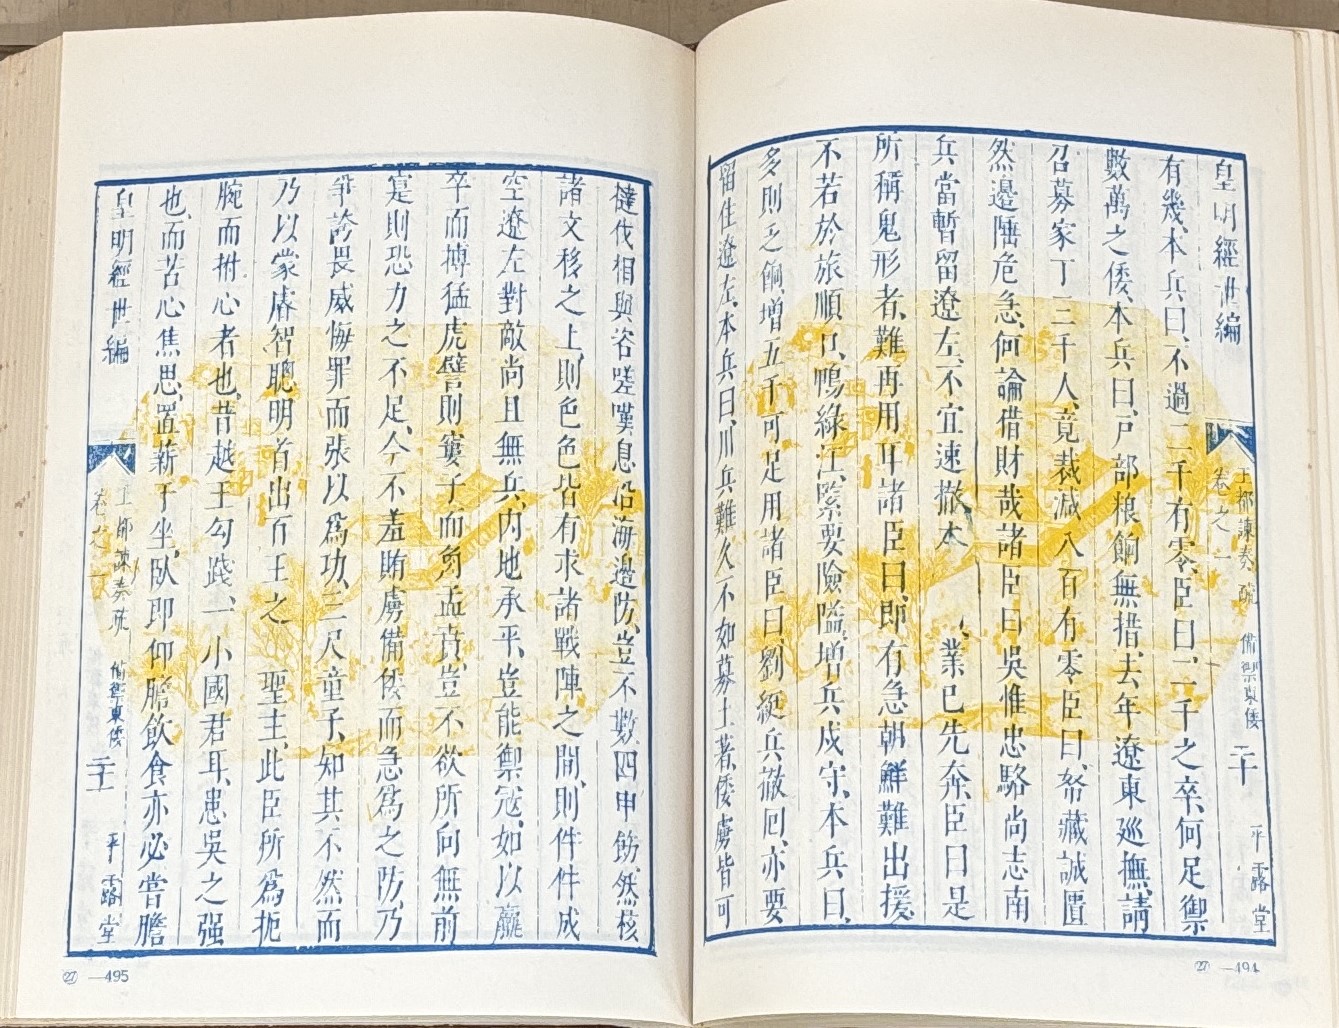 皇明經世編
王都諫奏疏
卷之一
備禦東倭
二十
平露堂
有幾、本兵曰、不過二千有零、臣曰、二千之卒、何足禦
數萬之倭、本兵曰、戸部粮餉無措、去年遼東廵撫、請
召募家丁三千人、竟裁減八百有零、臣曰、帑藏誠匱
然邊陲危急、何論借財哉、諸臣曰、吳惟忠駱尚志南
兵當暫留遼左、不宜速撤、本 業已先奔、臣曰、是
所稱鬼形者、難再用耳、諸臣曰、即有急、朝鮮難出援、
不若於旅順口、鴨綠江、緊要險隘、增兵戍守、本兵曰、
多則乏餉、增五千可足用、諸臣曰、劉綎兵撤囘、亦要
留住遼左、本兵曰、川兵難久、不如募土著、倭虜皆可
㉗—494
撻伐、相與咨嗟嘆息、沿海邊防、豈不數四申飭、然核
諸文移之上、則色色皆有、求諸戰陣之間、則件件成
空、遼左對敵、尚且無兵、内地承平、豈能禦寇、如以羸
卒而搏猛虎、譬則窶子而角孟賁、豈不欲所向無前
寔則恐力之不足、今不羞賂虜備倭、而急爲之防、乃
爭誇畏威悔罪、而張以爲功、三尺童子、知其不然、而
乃以蒙睿智聰明首出百王之 聖主、此臣所爲扼
腕而拊心者也、昔越王勾踐、一小國君耳、患吳之强
也、而苦心焦思、置薪于坐、臥即仰膽、飲食亦必嘗膽
皇明經世編
王都諫奏疏
卷之一
備禦東倭
平露堂
㉗—495